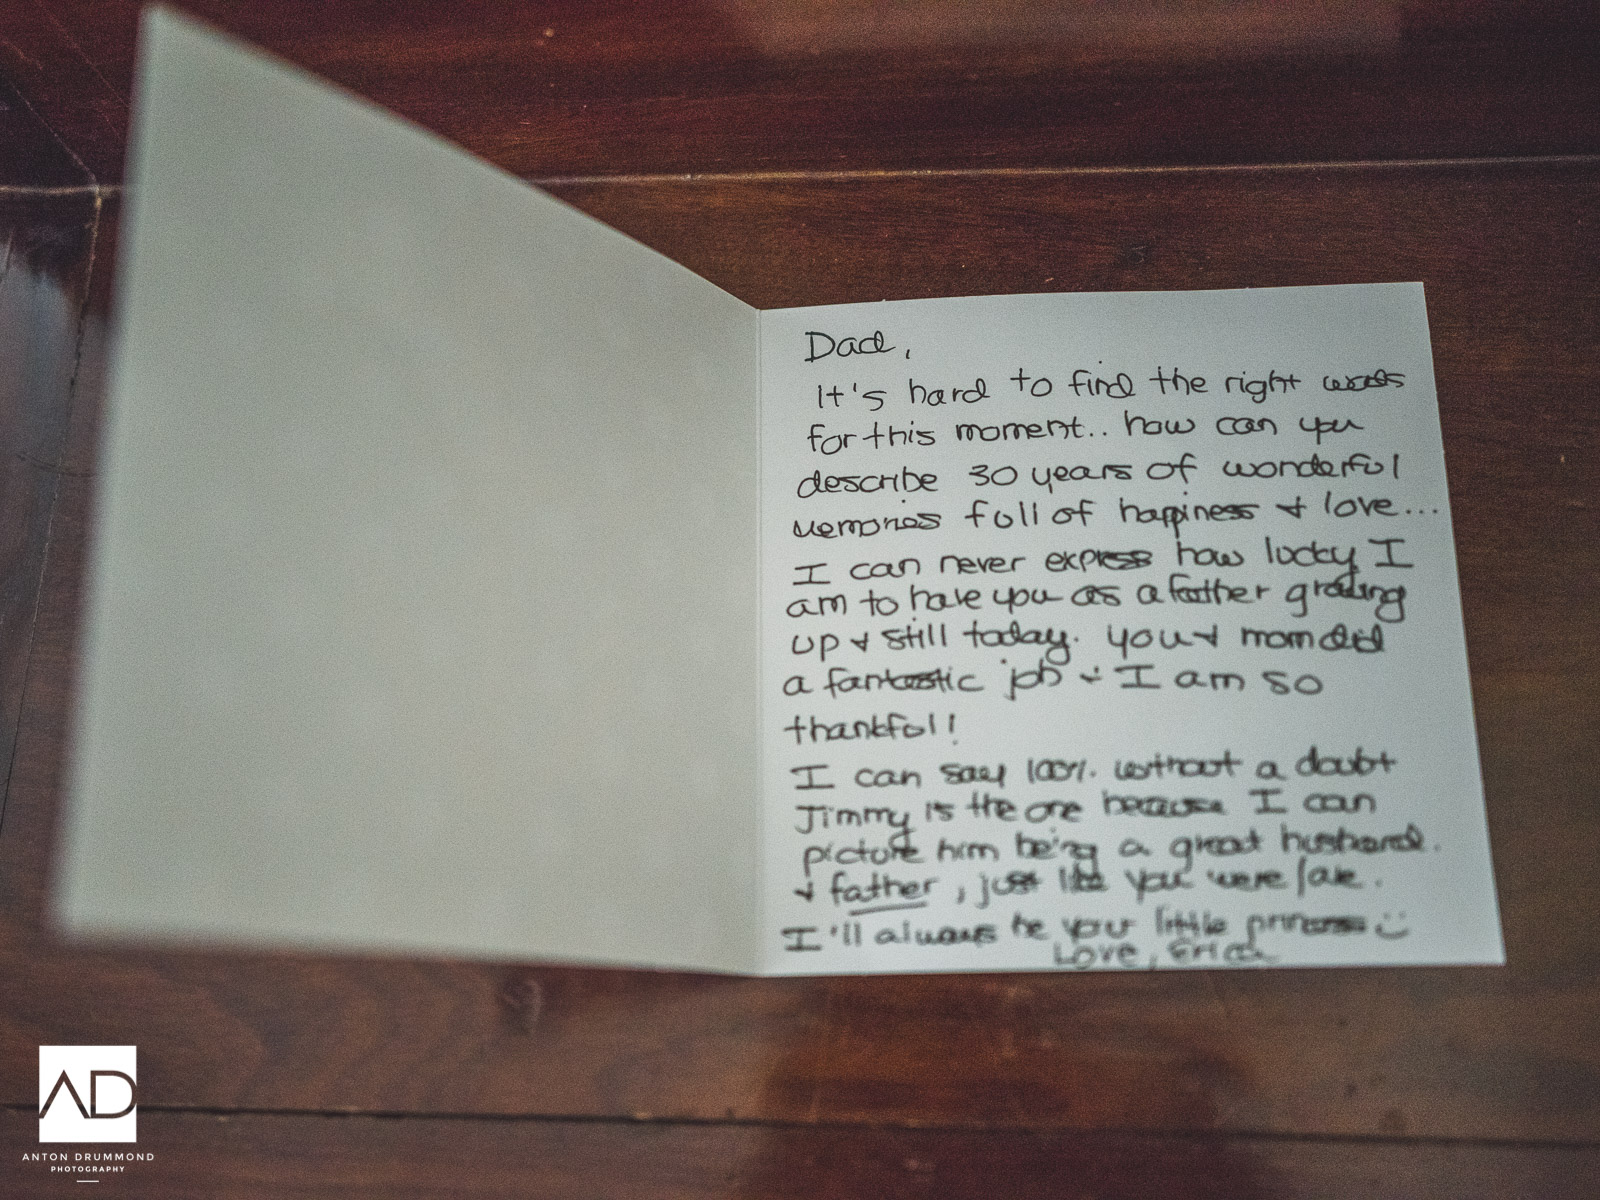 Dad,
It's hard to find the right words
for this moment.. how can you
describe 30 years of wonderful
memories full of happiness & love...
I can never express how lucky I
am to have you as a father growing
up & still today. you & mom did
a fantastic job & I am so
thankful!
I can say 100% without a doubt
Jimmy is the one because I can
picture him being a great husband.
& father, just like you were/are.
I'll always be your little princess :)
Love, Erica
AD
ANTON DRUMMOND
PHOTOGRAPHY